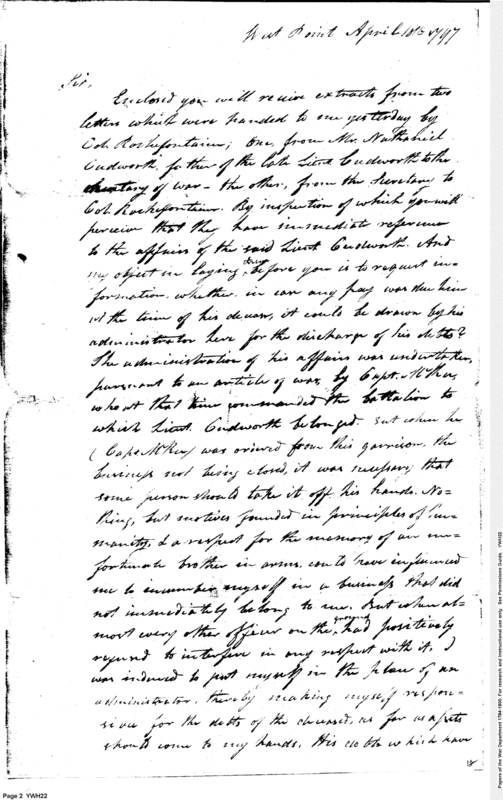 West Point April 18th 1797
Sir,
Enclosed you will receive extracts from two
letters which were handed to me yesterday by
Col. Rochefontaine; One, from Mr. Nathaniel
Cudworth, father of the late Lieut Cudworth to the
Secretary of war – the other, from the Secretary to
Col. Rochefontaine. By inspection of which you will
perceive that they have immediate reference
to the affairs of the said Lieut Cudworth. And
my object in laying them before you is to request in=
formation, whether, in case any pay was due him
at the time of his decease, it could be drawn by his
administrator here for the discharge of his debts?
The administration of his affairs was undertaken,
pursuant to an article of war, by Capt. McRea,
who at that time commanded the battalion to
which Lieut. Cudworth belonged. But when he
(Capt. McRea) was ordered from this garrison, the
business not being closed, it was necessary that
some person should take it off his hands. No=
thing, but motives founded in principles of hu=
manity, & a respect for the memory of an un=
fortunate brother in arms, could have influenced
me to incumber myself in a business that did
not immediately belong to me. But when al=
most every other officer on the ground had positively
refused to interfere in any respect with it, I
was induced to put myself in the place of an
administrator, thereby making myself respon=
sible for the debts of the deceased, as far as assets
should come to my hands. His debts which have
Page 2 YWH22
Papers of the War Department 1784-1800. For research and instructional use only. See Permissions Guide. YWH22